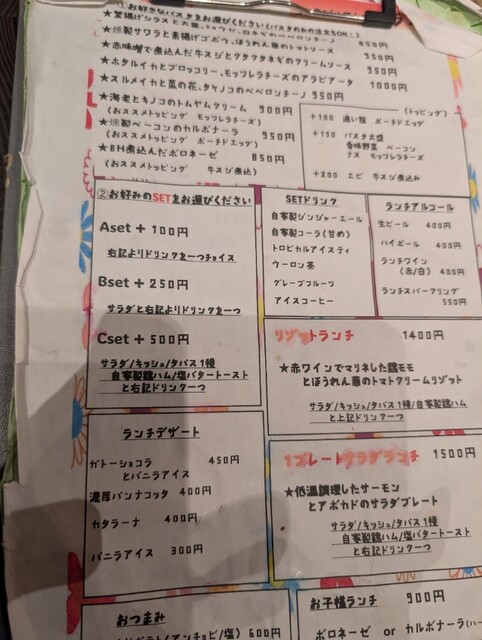 ①お好きなパスタをお選びください(パスタのみの注文もOK！)
850円
★燻製サワラと素揚げゴボウ、ほうれん草のトマトソース 950円
★赤味噌で煮込んだ牛スジとクタクタネギのクリームソース 950円
★ホタルイカとブロッコリー、モッツレラチーズのアラビアータ 1000円
★スルメイカと菜の花、タケノコのペペロンチーノ 950円
★海老とキノコのトムヤムクリーム 900円
(おススメトッピング モッツレラチーズ)
★燻製ベーコンのカルボナーラ 950円
(おススメトッピング ポーチドエッグ)
★BH煮込んだボロネーゼ 850円
(おススメトッピング 牛スジ煮込)
(トッピング)
+100 追い麺 ポーチドエッグ
+150 パスタ大盛
香味野菜 ベーコン
ナス モッツレラチーズ
+200 エビ 牛スジ煮込み
②お好みのSETをお選びください
Aset + 100円
右記よりドリンクを一つチョイス
Bset + 250円
サラダと右記よりドリンクを一つ
Cset + 500円
サラダ/キッシュ/タパス1種
自家製鶏ハム/塩バタートースト
と右記ドリンク一つ
SETドリンク
自家製ジンジャーエール
自家製コーラ(甘め)
トロピカルアイスティ
ウーロン茶
グレープフルーツ
アイスコーヒー
ランチアルコール
生ビール 400円
ハイボール 400円
ランチワイン
(赤/白) 400円
ランチスパークリング
550円
リゾットランチ 1400円
★赤ワインでマリネした鶏モモ
とほうれん草のトマトクリームリゾット
サラダ/キッシュ/タパス1種/自家製鶏ハム
と上記ドリンク一つ
ランチデザート
ガトーショコラ 450円
とバニラアイス
濃厚パンナコッタ 400円
カタラーナ 400円
バニラアイス 300円
1プレートサラダランチ 1500円
★低温調理したサーモン
とアボカドのサラダプレート
サラダ/キッシュ/タパス1種
自家製鶏ハム/塩バタートースト
と右記ドリンク一つ
おつまみ
(アンチョビ/塩) 600円
お子様ランチ 900円
ボロネーゼ or カルボナーラ